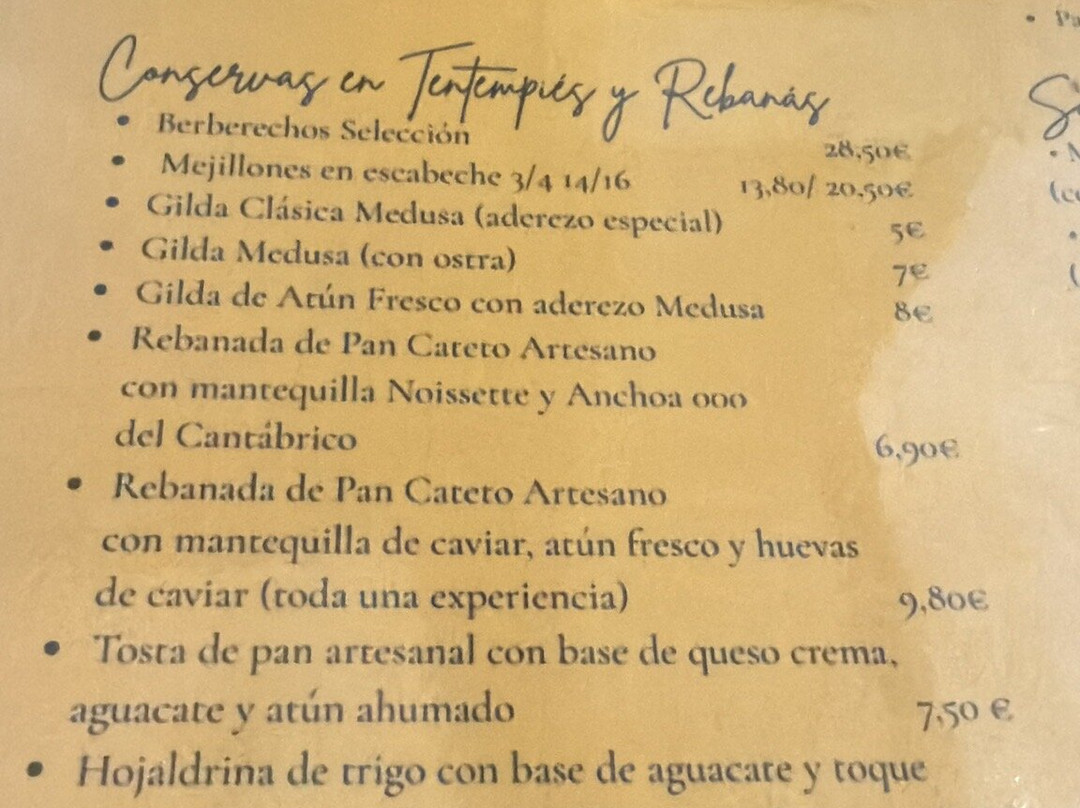 Conservas en Tentempiés y Rebanás
• Berberechos Selección 28,50€
• Mejillones en escabeche 3/4 14/16 13,80/ 20,50€
• Gilda Clásica Medusa (aderezo especial) 5€
• Gilda Medusa (con ostra) 7€
• Gilda de Atún Fresco con aderezo Medusa 8€
• Rebanada de Pan Cateto Artesano
con mantequilla Noissette y Anchoa 000
del Cantábrico 6,90€
• Rebanada de Pan Cateto Artesano
con mantequilla de caviar, atún fresco y huevas
de caviar (toda una experiencia) 9,80€
• Tosta de pan artesanal con base de queso crema,
aguacate y atún ahumado 7,50 €
• Hojaldrina de trigo con base de aguacate y toque